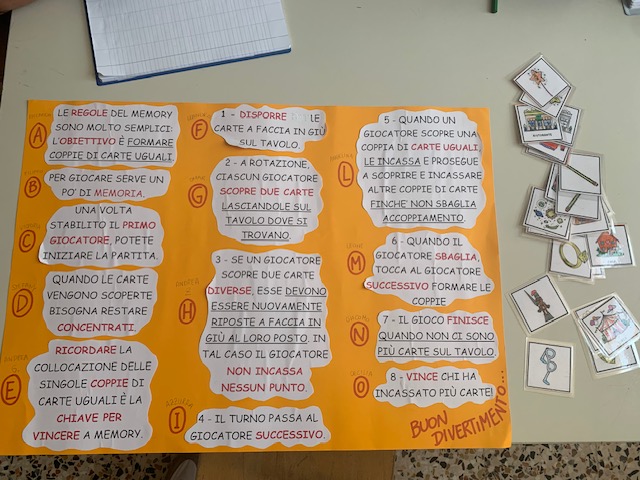 A
LE REGOLE DEL MEMORY
SONO MOLTO SEMPLICI:
L'OBIETTIVO È FORMARE
COPPIE DI CARTE UGUALI
B
PER GIOCARE SERVE UN
PO' DI MEMORIA.
C
UNA VOLTA
STABILITO IL PRIMO
GIOCATORE, POTETE
INIZIARE LA PARTITA.
D
QUANDO LE CARTE
VENGONO SCOPERTE
BISOGNA RESTARE
CONCENTRATI.
E
RICORDARE LA
COLLOCAZIONE DELLE
SINGOLE COPPIE DI
CARTE UGUALI È LA
CHIAVE PER
VINCERE A MEMORY.
F
1 - DISPORRE LE
CARTE A FACCIA IN GIÙ
SUL TAVOLO.
G
2 - A ROTAZIONE,
CIASCUN GIOCATORE
SCOPRE DUE CARTE
LASCIANDOLE SUL
TAVOLO DOVE SI
TROVANO.
H
3 - SE UN GIOCATORE
SCOPRE DUE CARTE
DIVERSE, ESSE DEVONO
ESSERE NUOVAMENTE
RIPOSTE A FACCIA IN
GIÙ AL LORO POSTO. IN
TAL CASO IL GIOCATORE
NON INCASSA
NESSUN PUNTO.
I
4 - IL TURNO PASSA AL
GIOCATORE SUCCESSIVO.
L
5 - QUANDO UN
GIOCATORE SCOPRE UNA
COPPIA DI CARTE UGUALI,
LE INCASSA E PROSEGUE
A SCOPRIRE E INCASSARE
ALTRE COPPIE DI CARTE
FINCHE' NON SBAGLIA
ACCOPPIAMENTO.
M
6 - QUANDO IL
GIOCATORE SBAGLIA,
TOCCA AL GIOCATORE
SUCCESSIVO FORMARE LE
COPPIE
N
7 - IL GIOCO FINISCE
QUANDO NON CI SONO
PIÙ CARTE SUL TAVOLO.
O
8 - VINCE CHI HA
INCASSATO PIÙ CARTE!
BUON
DIVERTIMENTO...